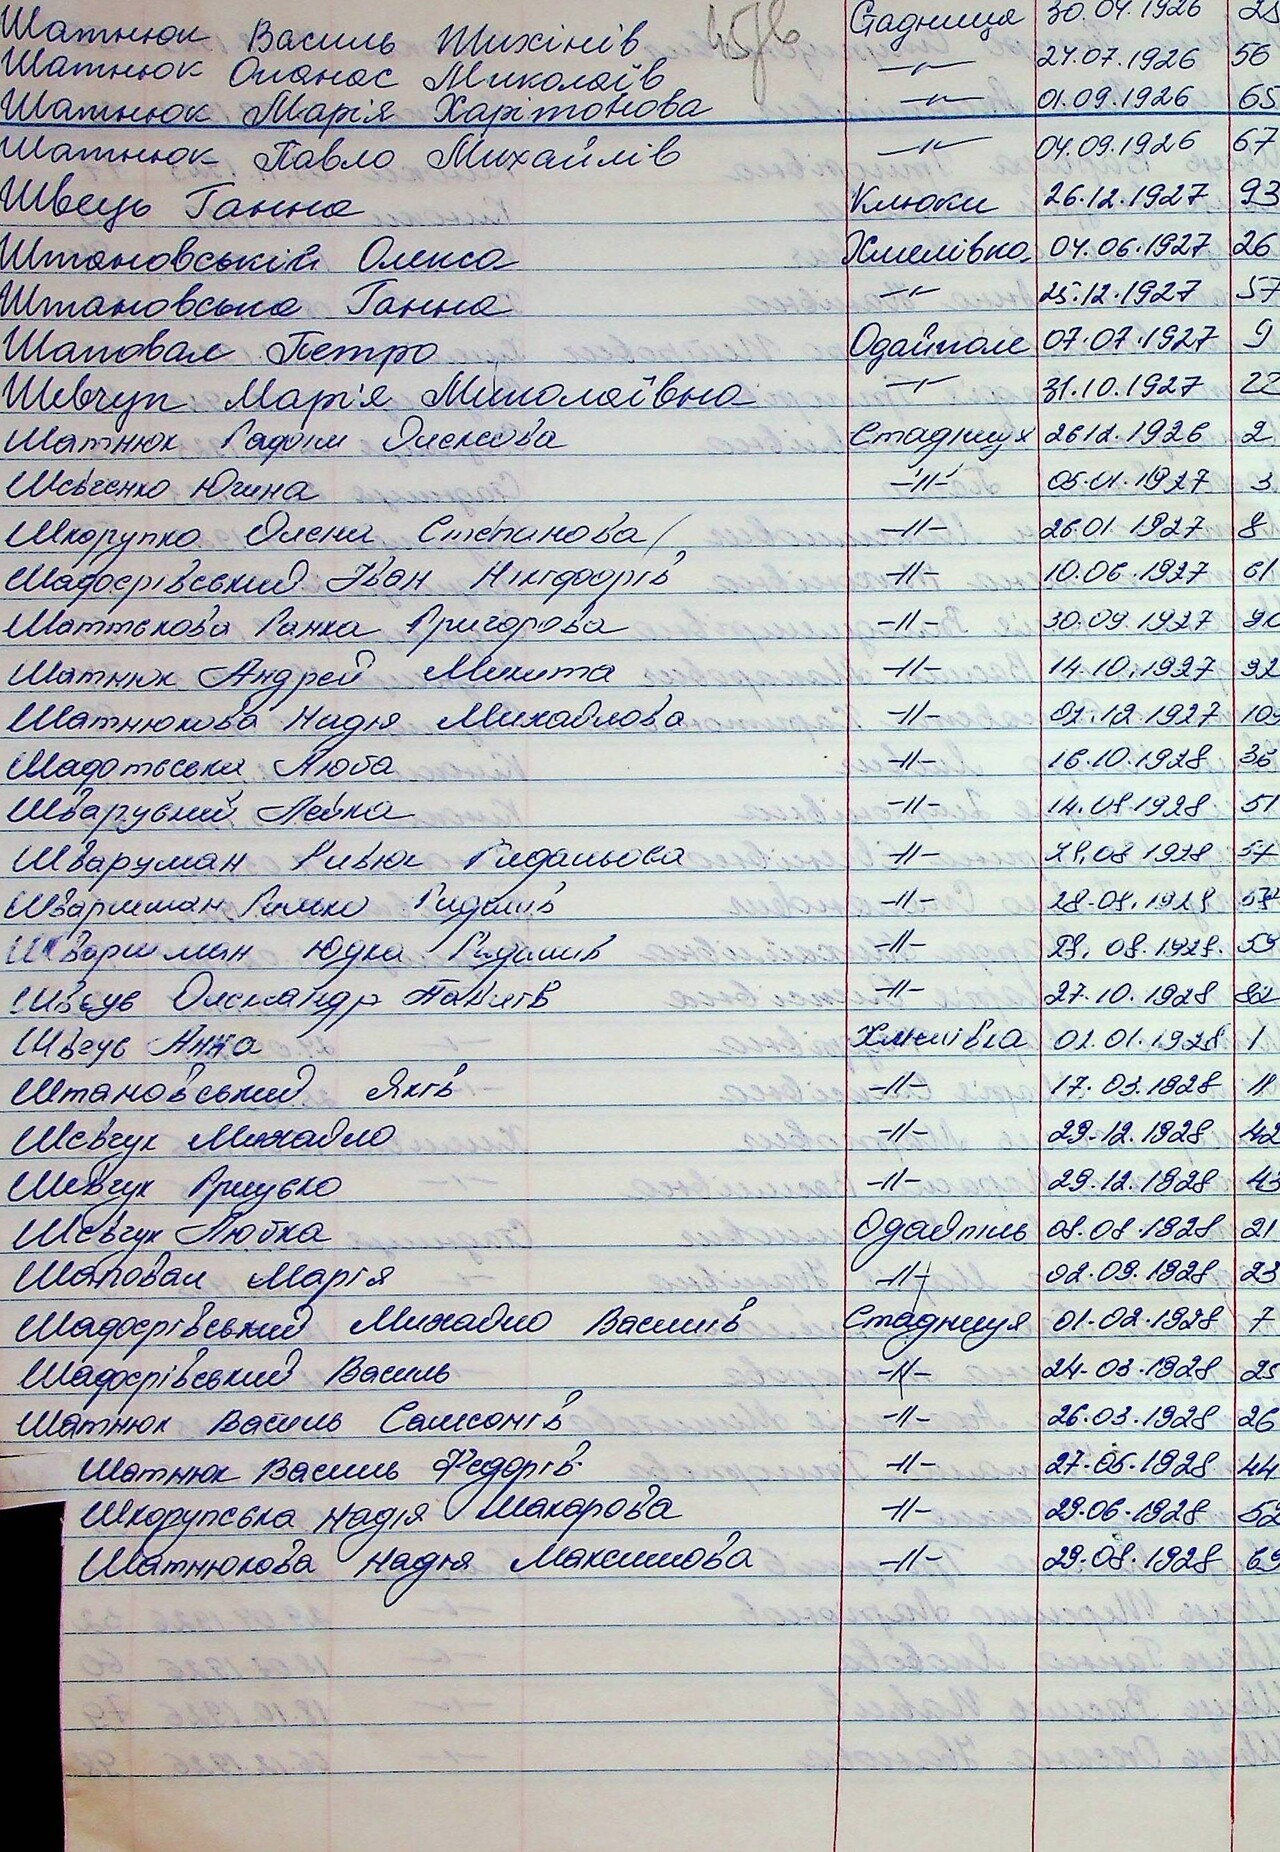 Шатнюк Василь Тихінів Стадниця 30.04.1926
Шатнюк Опанас Миколаїв —"— 24.07.1926 56
Шатнюк Марія Харітонова —"— 01.09.1926 65
Шатнюк Павло Михайлів —"— 04.09.1926 67
Швець Ганна Клюки 26.12.1927 93
Штановській Олекса Хмелівка 04.06.1927 26
Штановська Ганна —"— 25.12.1927 57
Шаповал Петро Одайполе 07.07.1927 9
Шевчук Мар'я Миколаївна —"— 31.10.1927 22
Шатнюк Олексова Стадниця 26.12.1926 2
Шевченко Югина —"— 05.01.1927 3
Шкорупко Олена Степанова —"— 26.01.1927 8
Шадосрівський Іван Нікіфорів —"— 10.06.1927 61
Ганка Григорова —"— 30.09.1927
Шатнюк Андрей Микита —"— 14.10.1927 92
Шатнюкова Надія Михайлова —"— 02.12.1927
Люба —"— 16.10.1928 36
Лейка —"— 14.08.1928 51
Шваруман —"— 28.08.1928 57
—"— 28.08.1928
Шваршман Юдка —"— 28.08.1928. 59
Олександр —"— 27.10.1928 82
Анна Хмелівка 02.01.1928 1
Штановський Яків —"— 17.03.1928 11
Шевчук Михайло —"— 29.12.1928 42
Шевчук Грицько —"— 29.12.1928 43
Шевчук Любка Одайпіль 08.08.1928 21
Шаповал Марія —"— 02.09.1928 23
Шадосрівський Михайло Василів Стадниця 01.02.1928 7
Шадосрівський Василь —"— 24.03.1928 25
Шатнюк Василь Самсонів —"— 26.03.1928 26
Шатнюк Василь Федорів —"— 27.05.1928 44
Шкорупська Надія Макарова —"— 29.06.1928 52
Шатнюкова Надія Максимова —"— 29.08.1928 69